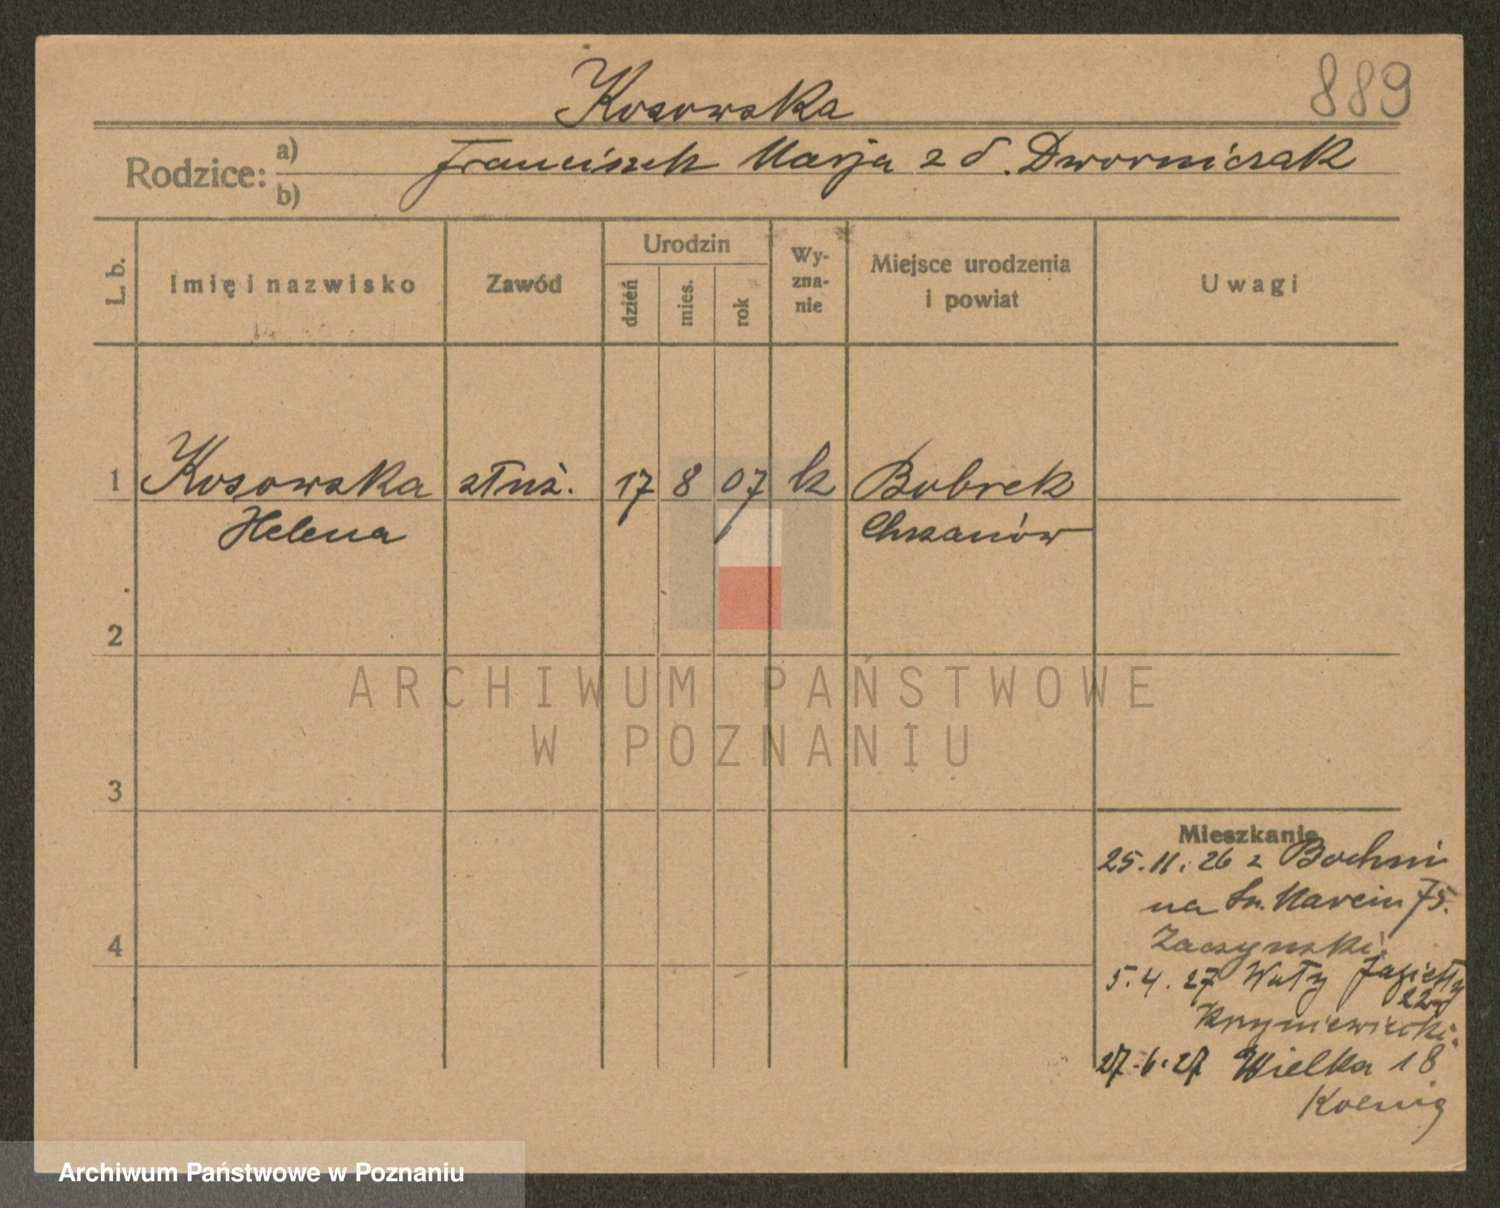 889
Kosowska
Rodzice: a) b)
Franciszek Marja z d. Dworniczak
L. b.
Imię i nazwisko
Zawód
Urodzin
dzień
mies.
rok
Wy-
zna-
nie
Miejsce urodzenia
i powiat
Uwagi
1 Kosowska służ. 17 8 07 k Bobrek
Helena Chrzanów
2
ARCHIWUM PAŃSTWOWE
W POZNANIU
3
Mieszkanie
25.11.26 z Bochni
na Św. Marcin 75.
Zaczynski
4
5.4.27 Wały Jagiełły
27.6.27 Wielka 18
Koenig
Archiwum Państwowe w Poznaniu